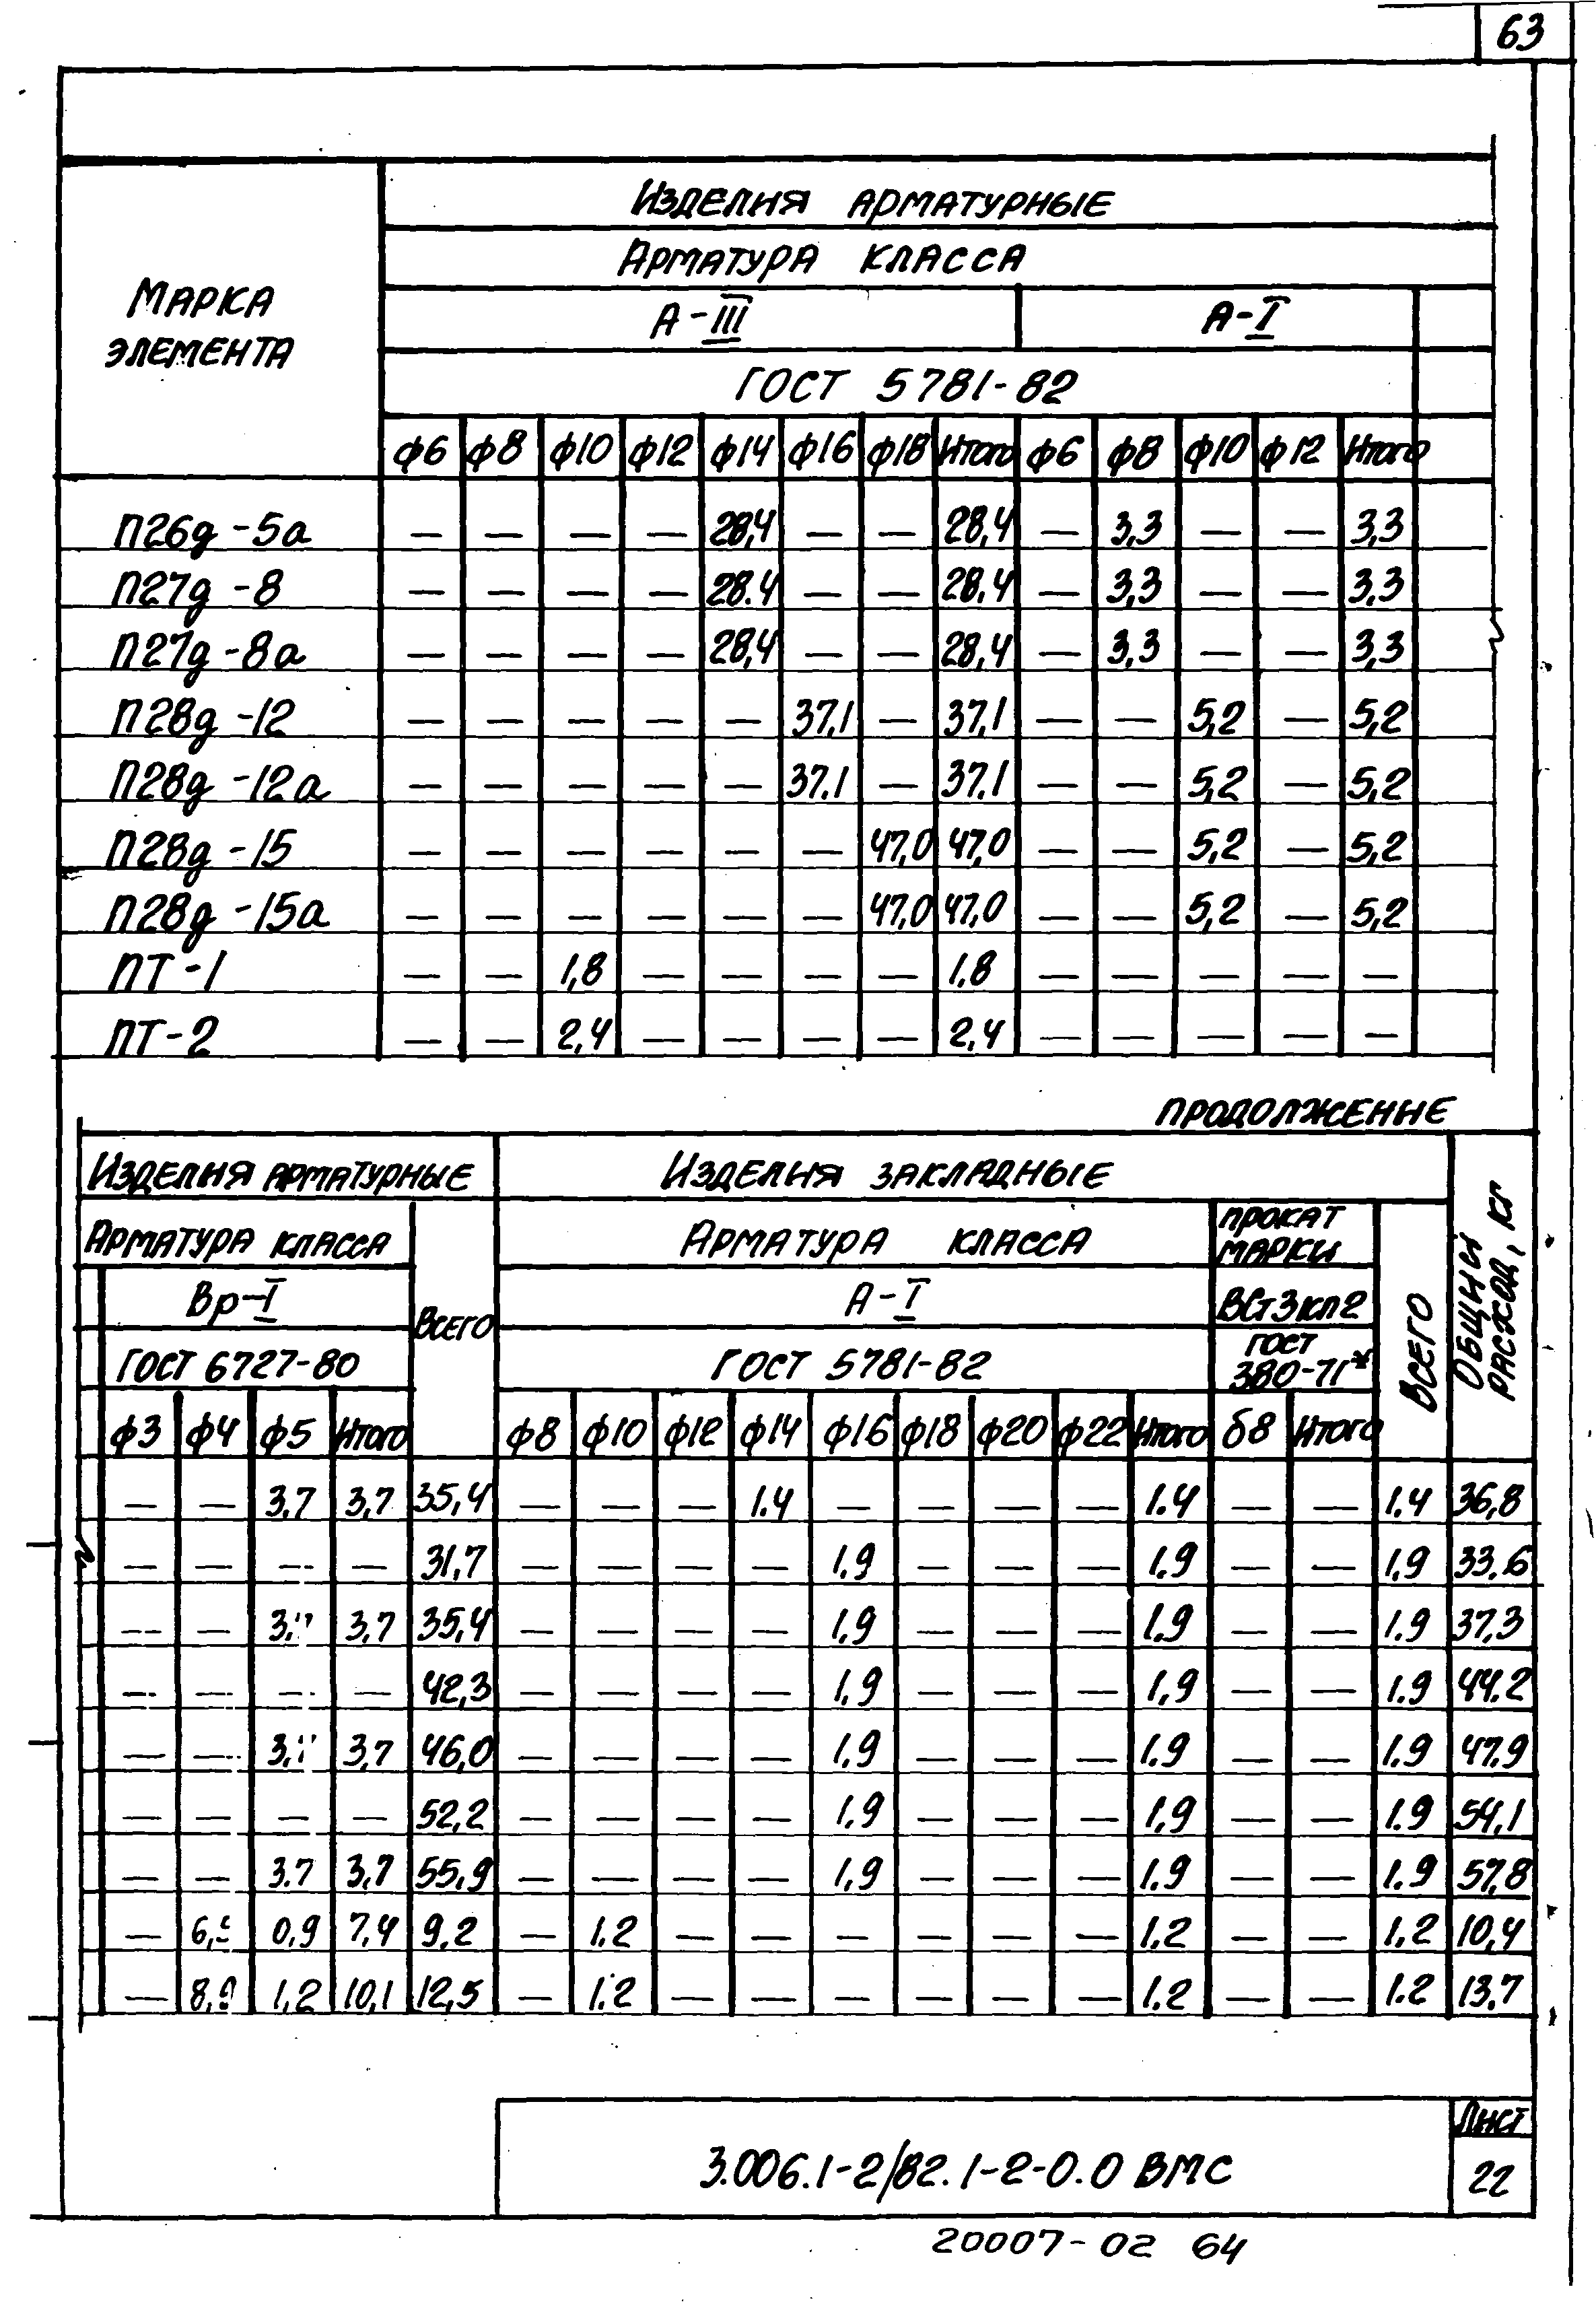 63
Изделия арматурные
Марка элемента
Арматура класса
А-III А-I
ГОСТ 5781-82
ф6 ф8 ф10 ф12 ф14 ф16 ф18 Итого ф6 ф8 ф10 ф12 Итого
П26д-5а — — — — 28,4 — — 28,4 — 3,3 — — 3,3
П27д-8 — — — — 28.4 — — 28.4 — 3,3 — — 3,3
П27д-8а — — — — 28,4 — — 28,4 — 3,3 — — 3,3
П28д-12 — — — — — 37,1 — 37,1 — — 5,2 — 5,2
П28д-12а — — — — — 37.1 — 37.1 — — 5,2 — 5,2
П28д-15 — — — — — — 47,0 47,0 — — 5,2 — 5,2
П28д-15а — — — — — — 47,0 47,0 — — 5,2 — 5,2
ПТ-1 — — 1,8 — — — — 1,8 — — — — —
ПТ-2 — — 2,4 — — — — 2,4 — — — — —
продолжение
Изделия арматурные Изделия закладные Общий расход, кг
Арматура класса Всего Арматура класса прокат марки Всего
Вр-I А-I ВСт3кп2
ГОСТ 6727-80 ГОСТ 5781-82 ГОСТ 380-71*
ф3 ф4 ф5 Итого ф8 ф10 ф12 ф14 ф16 ф18 ф20 ф22 Итого δ8 Итого
— — 3.7 3,7 35,4 — — — 1.4 — — — — 1.4 — — 1.4 36,8
— — — — 31,7 — — — — 1,9 — — — 1.9 — — 1,9 33.6
— — 3,7 3,7 35,4 — — — — 1,9 — — — 1.9 — — 1.9 37,3
— — — — 42,3 — — — — 1,9 — — — 1,9 — — 1.9 44.2
— — 3,7 3,7 46,0 — — — — 1,9 — — — 1.9 — — 1.9 47.9
— — — — 52,2 — — — — 1,9 — — — 1,9 — — 1.9 54,1
— — 3.7 3,7 55,9 — — — — 1,9 — — — 1.9 — — 1.9 57,8
— 6,5 0,9 7,4 9,2 — 1.2 — — — — — — 1.2 — — 1,2 10,4
— 8,9 1,2 10,1 12,5 — 1.2 — — — — — — 1.2 — — 1.2 13,7
3.006.1-2/82.1-2-0.0 ВМС
Лист
22
20007-02 64